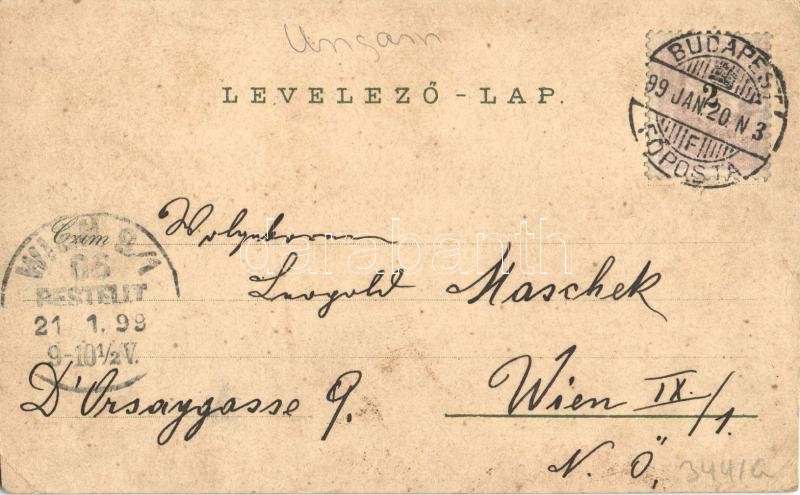 Ungarn
LEVELEZŐ-LAP.
BUDAPEST
2
99 JAN. 20 N 3
F
FŐPOSTA
Czim
Wolgeboren
Leopold Maschek
WIEN 9/1
66
BESTELLT
21 1.99
9-10½V.
D'Orsaygasse 9.
Wien IX./1.
N. Ö.
344/a
darabanth